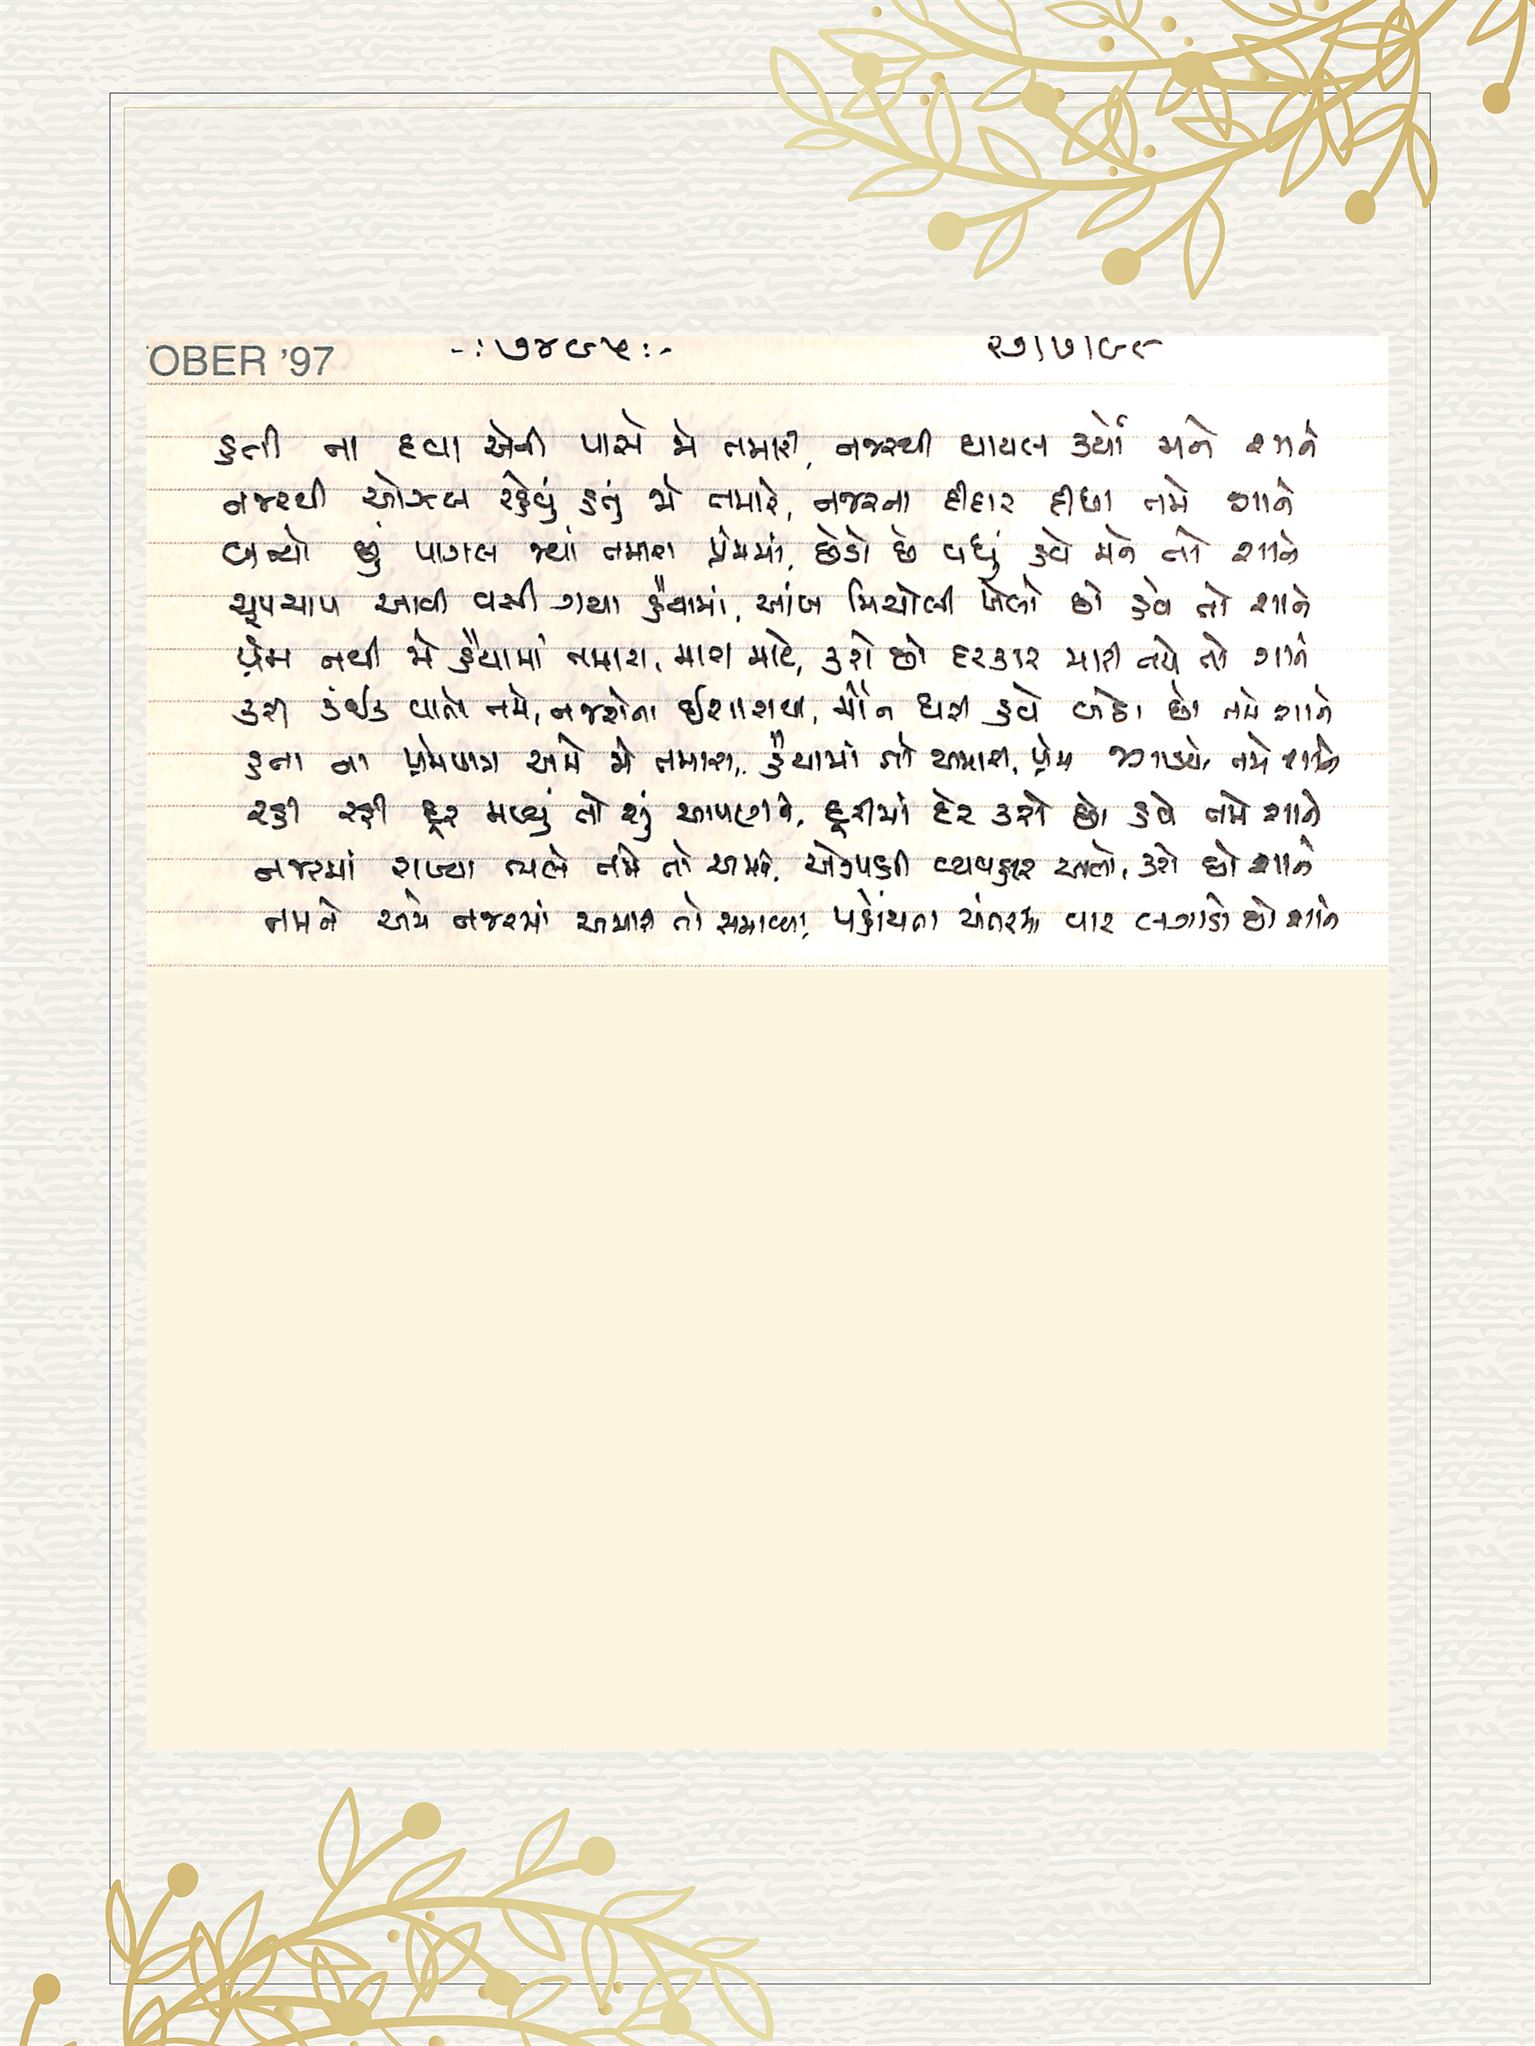 OBER '97 -:૭૪૯૫:- ૨૭/૭/૯૮
હતી ના દવા એની પાસે જો તમારી, નજરથી ઘાયલ કર્યો મને શાને
નજરથી ઓઝલ રહેવું હતું જો તમારે, નજરના દીદાર દીધા તમે શાને
બન્યો છું પાગલ જ્યાં તમારા પ્રેમમાં, છેડો છો વધું હવે મને તો શાને
ચૂપચાપ આવી વસી ગયા હૈયામાં, આંખ મિચોલી ખેલો છો હવે તો શાને
પ્રેમ નથી જો હૈયામાં તમારા, મારા માટે, કરો છો દરકાર મારી તમે તો શાને
કરી કંઈક વાતો તમે, નજરોના ઈશારામાં, મૌન ધરી હવે બેઠા છો તમે શાને
હતા ના પ્રેમપાત્ર અમે જો તમારા, હૈયામાં તો અમારા, પ્રેમ જગાવ્યો તમે શાને
રહી રહી દૂર મળ્યું તો શું આપણને, દૂરીમાં દેર કરો છો હવે તમે શાને
નજરમાં રાખ્યા ભલે તમે તો અમને, એકપક્ષી વ્યવહાર આવો, કરો છો શાને
તમને અમે નજરમાં અમારી તો સમાવ્યા, પહોંચતા અંતરમાં વાર લગાડો છો શાને